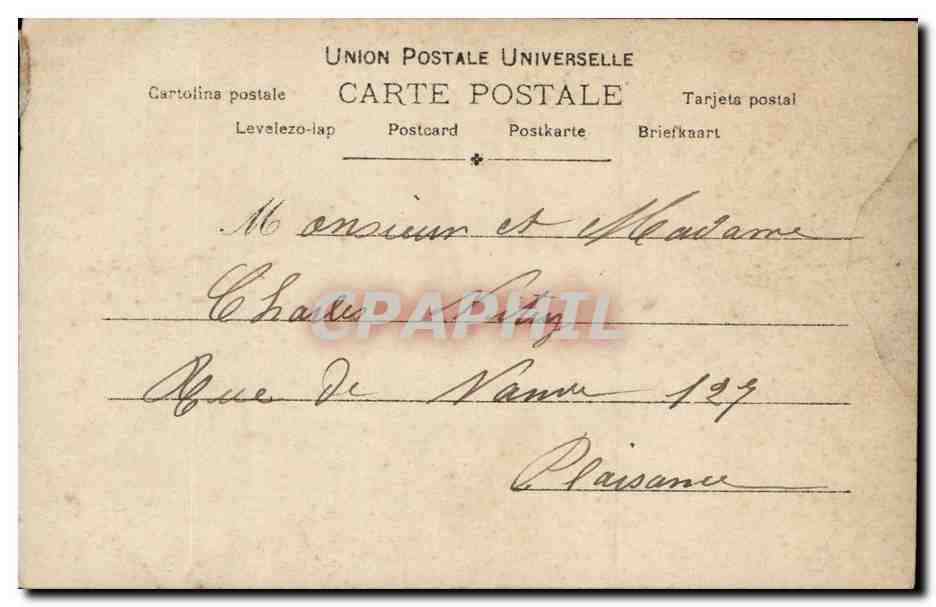 UNION POSTALE UNIVERSELLE
Cartolina postale CARTE POSTALE Tarjeta postal
Levelezo-lap Postcard Postkarte Briefkaart
Monsieur et Madame
Charles
CPAPHIL
Rue de 127
Plaisance